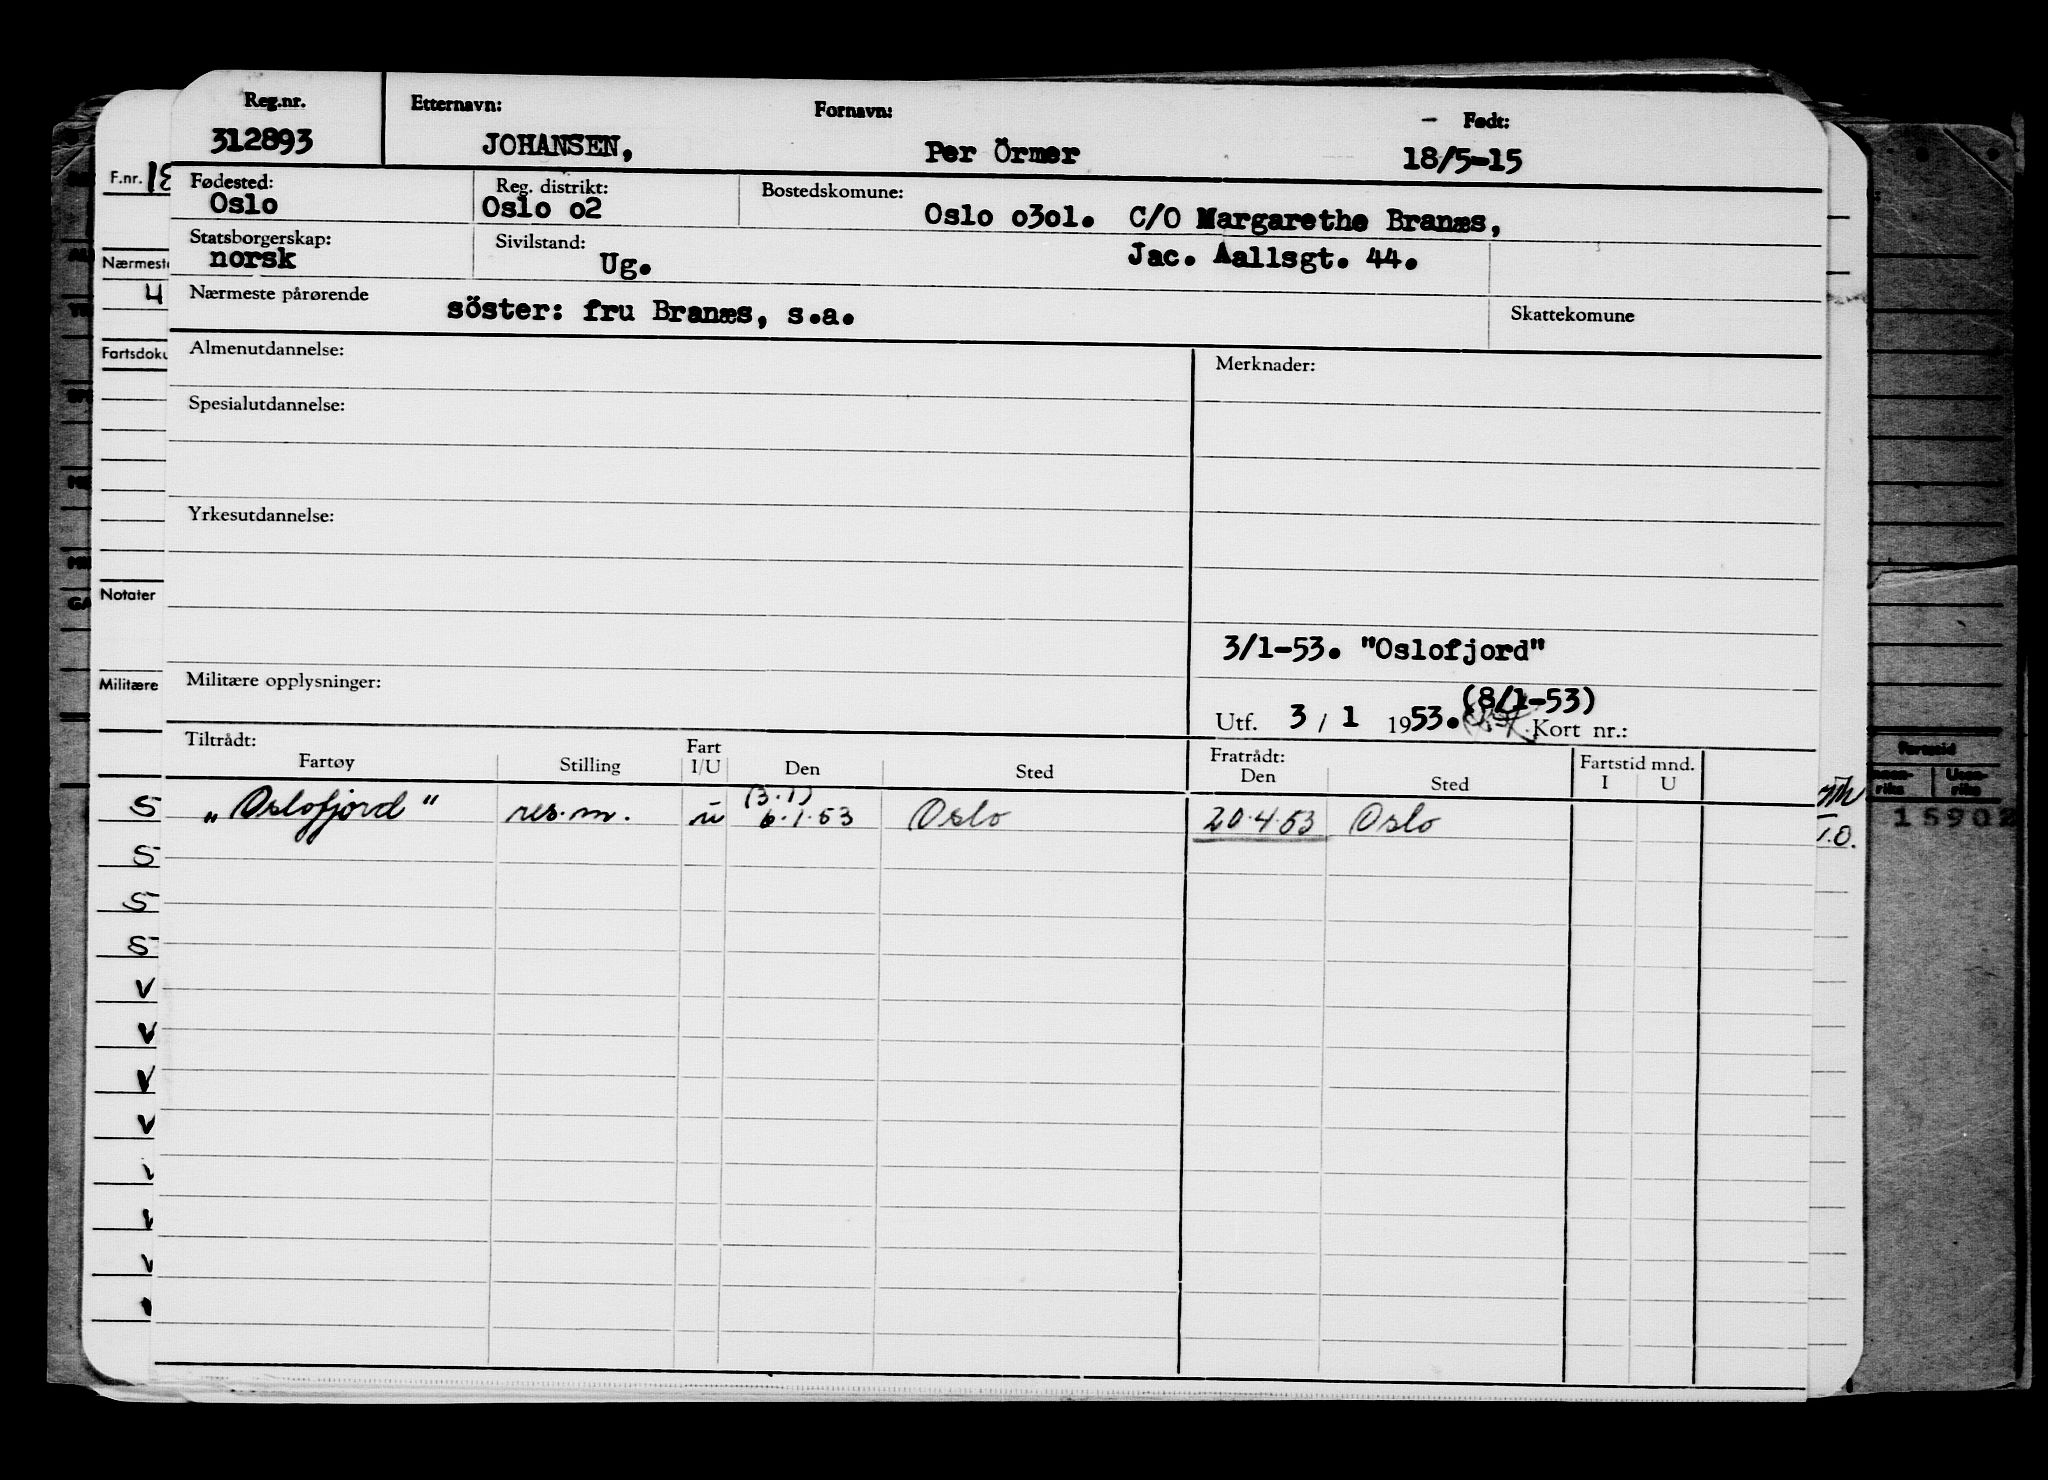 Reg.nr. Etternavn: Fornavn: Født:
312893 JOHANSEN, Per Örmer 18/5-15
F.nr. Fødested: Reg. distrikt: Bostedskomune:
Oslo Oslo o2 Oslo o3ol. C/O Margarethe Branæs,
Statsborgerskap: Sivilstand: Jac. Aallsgt. 44.
norsk Ug.
Nærmeste pårørende söster: fru Branæs, s.a. Skattekomune
Almenutdannelse: Merknader:
Spesialutdannelse:
Yrkesutdannelse:
Notater
3/1-53. "Oslofjord"
Militære Militære opplysninger: (8/1-53)
Utf. 3 / 1 1953. Kort nr.:
Tiltrådt: Fratrådt: Fartstid mnd.
Fartøy Stilling Fart I/U Den Sted Den Sted I U
(3.1)
S „Oslofjord" res.m. u 6.1.53 Oslo 20.4.53 Oslo
S
S
S
V
V
V
V
V
V
V
V
Fartstid
15902